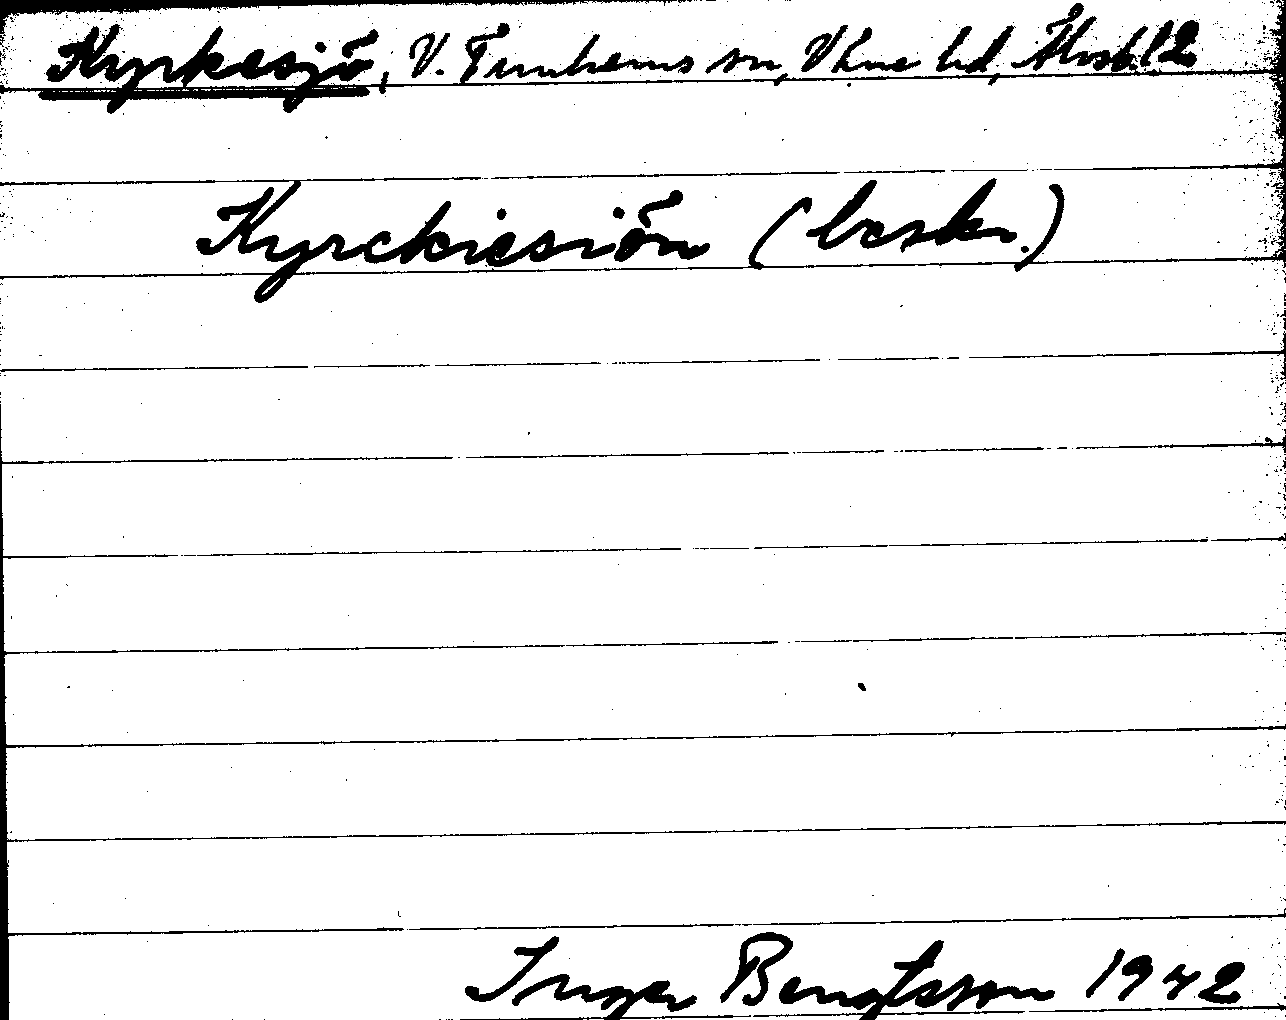 Kyrkesjö, V. Tunhems sn, Väne hd, Älvsb. l 2
Kyrckiesiön (beskr.)
Inger Bengtsson 1942